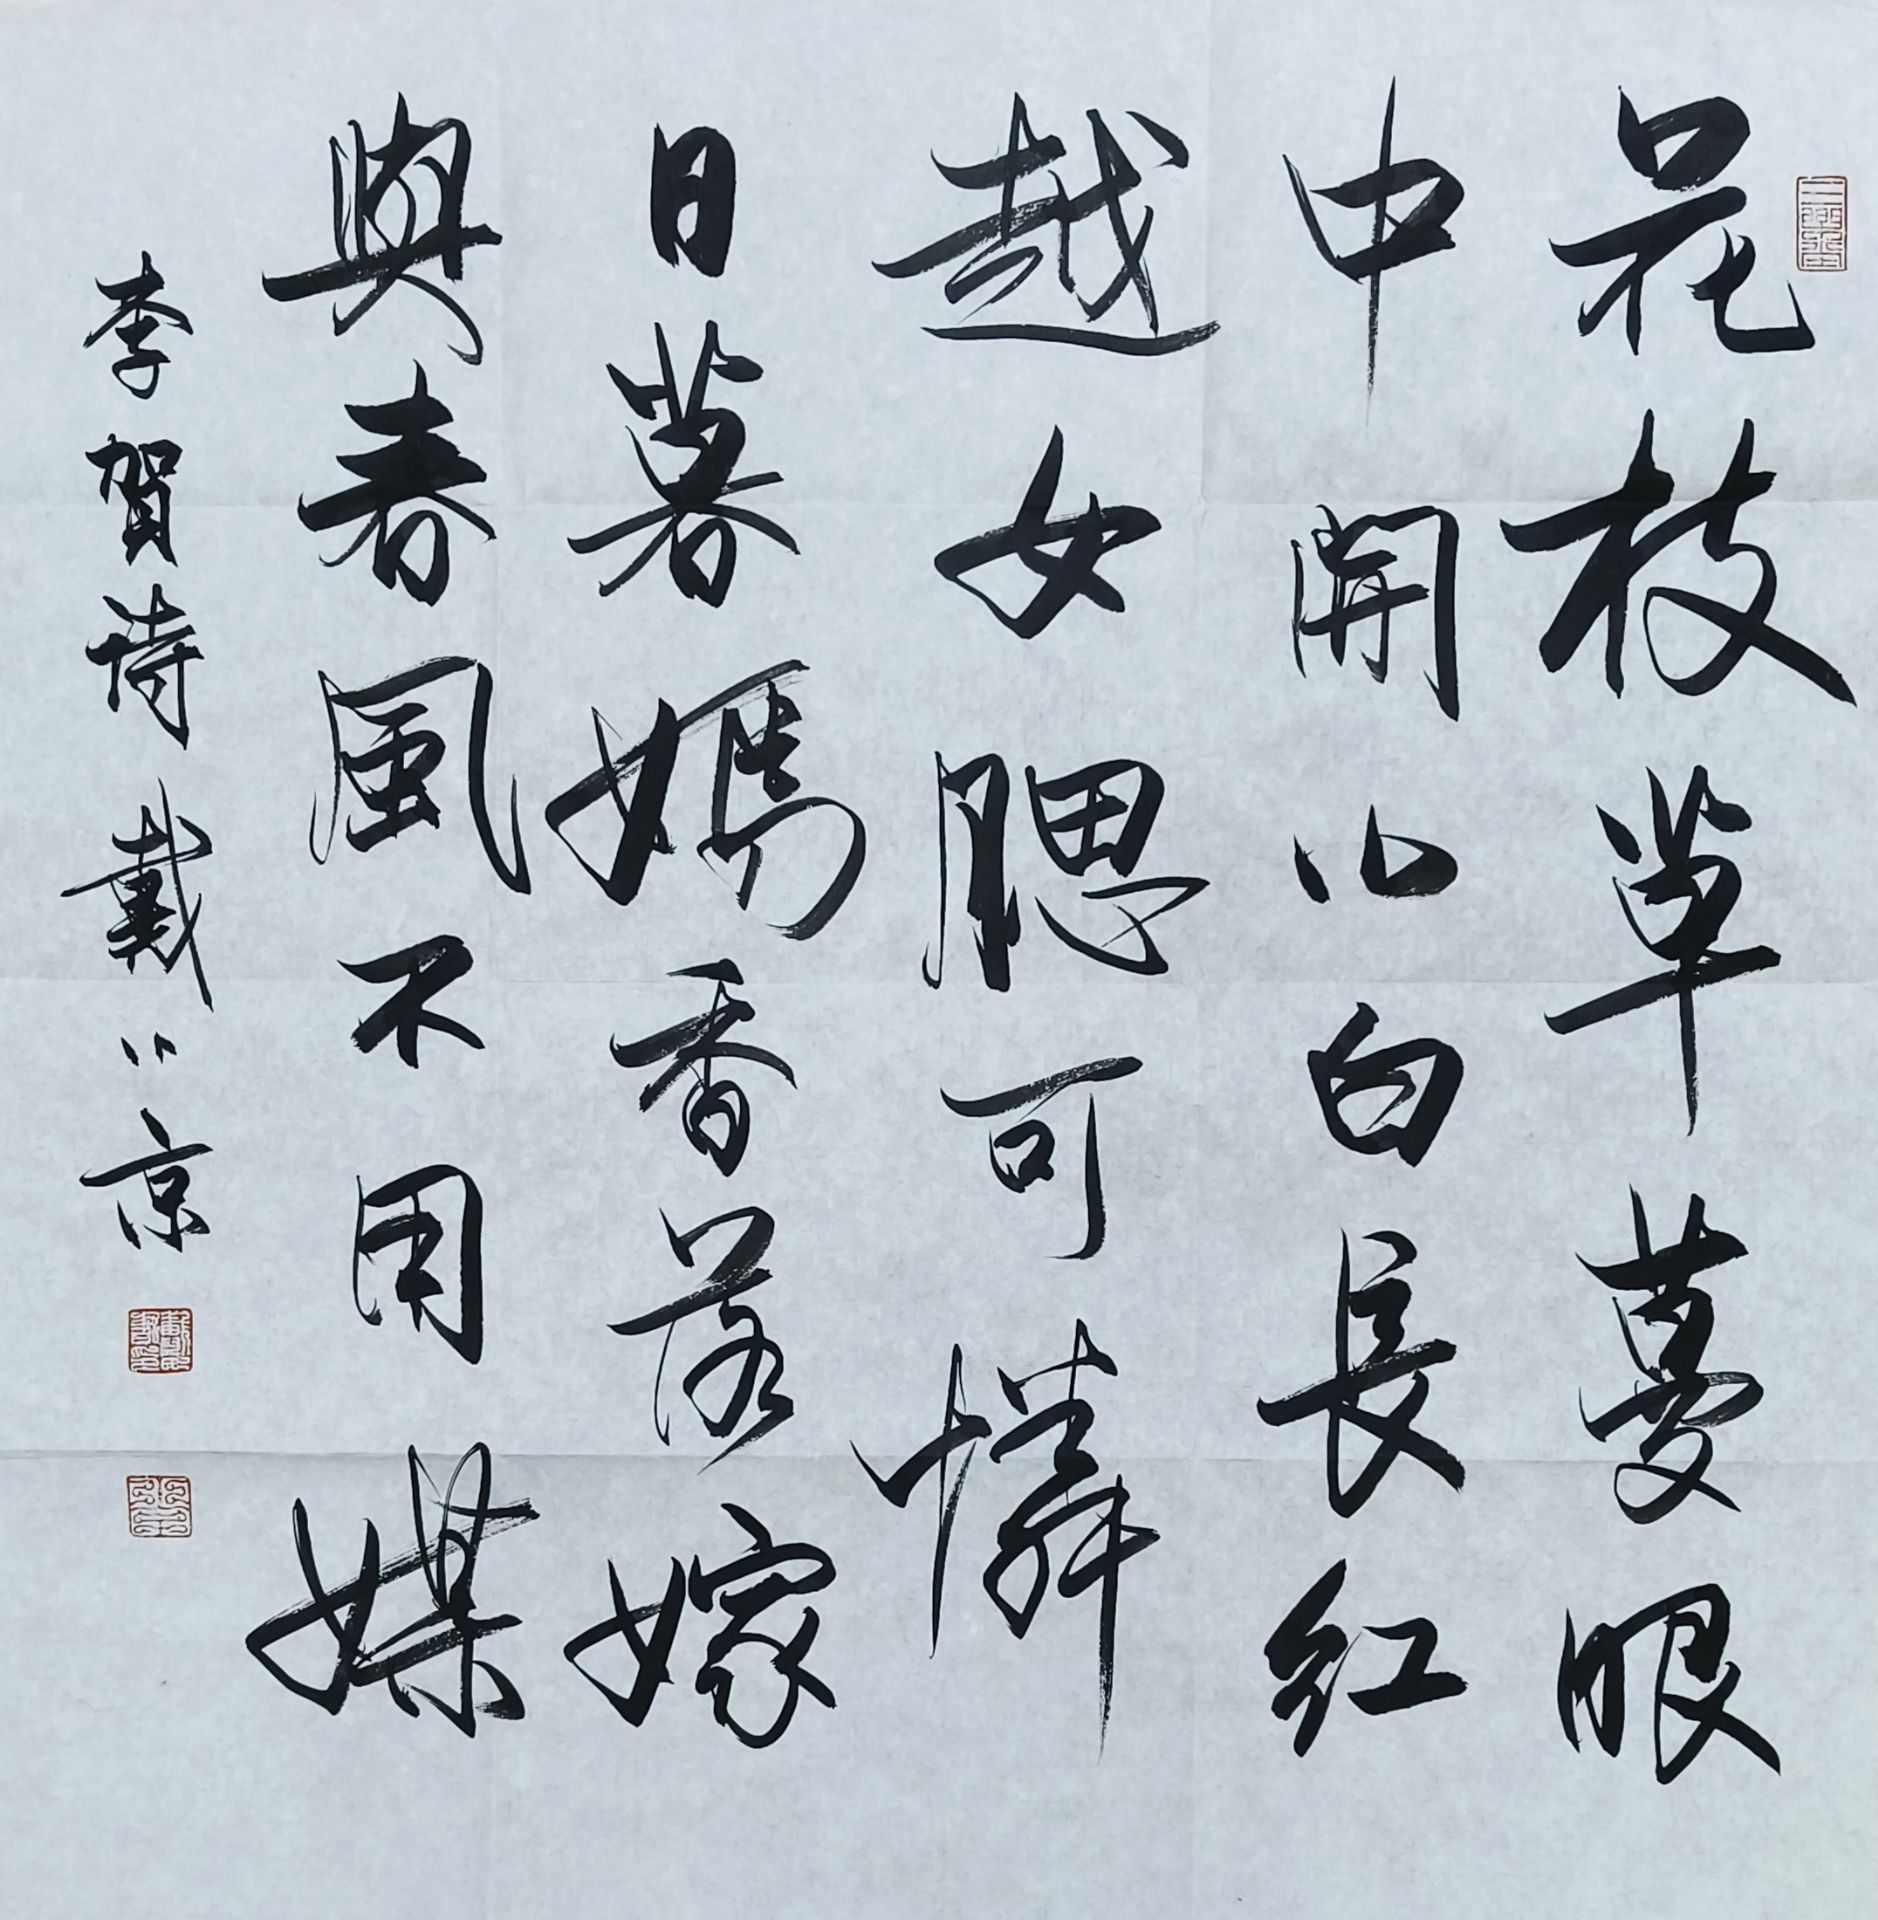 花枝草蔓眼
中開小白長紅
越女腮可憐
日暮嫣香落嫁
與春風不用媒
李賀诗 戴小京